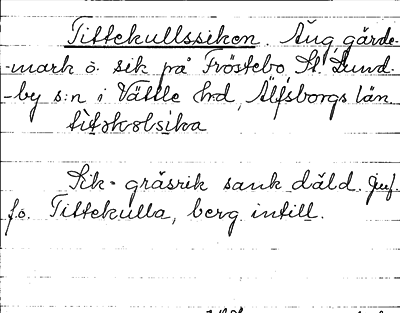 Tittekullssiken. Äng, gärde-
-mark o. sik på Fröstebo St. Lund.
-by s:n i Vättle hd, Älfsborgs län.
titəkolsika
Sik = gräsrik sank däld. Jmf.
f.ö. Tittekulla, berg intill.